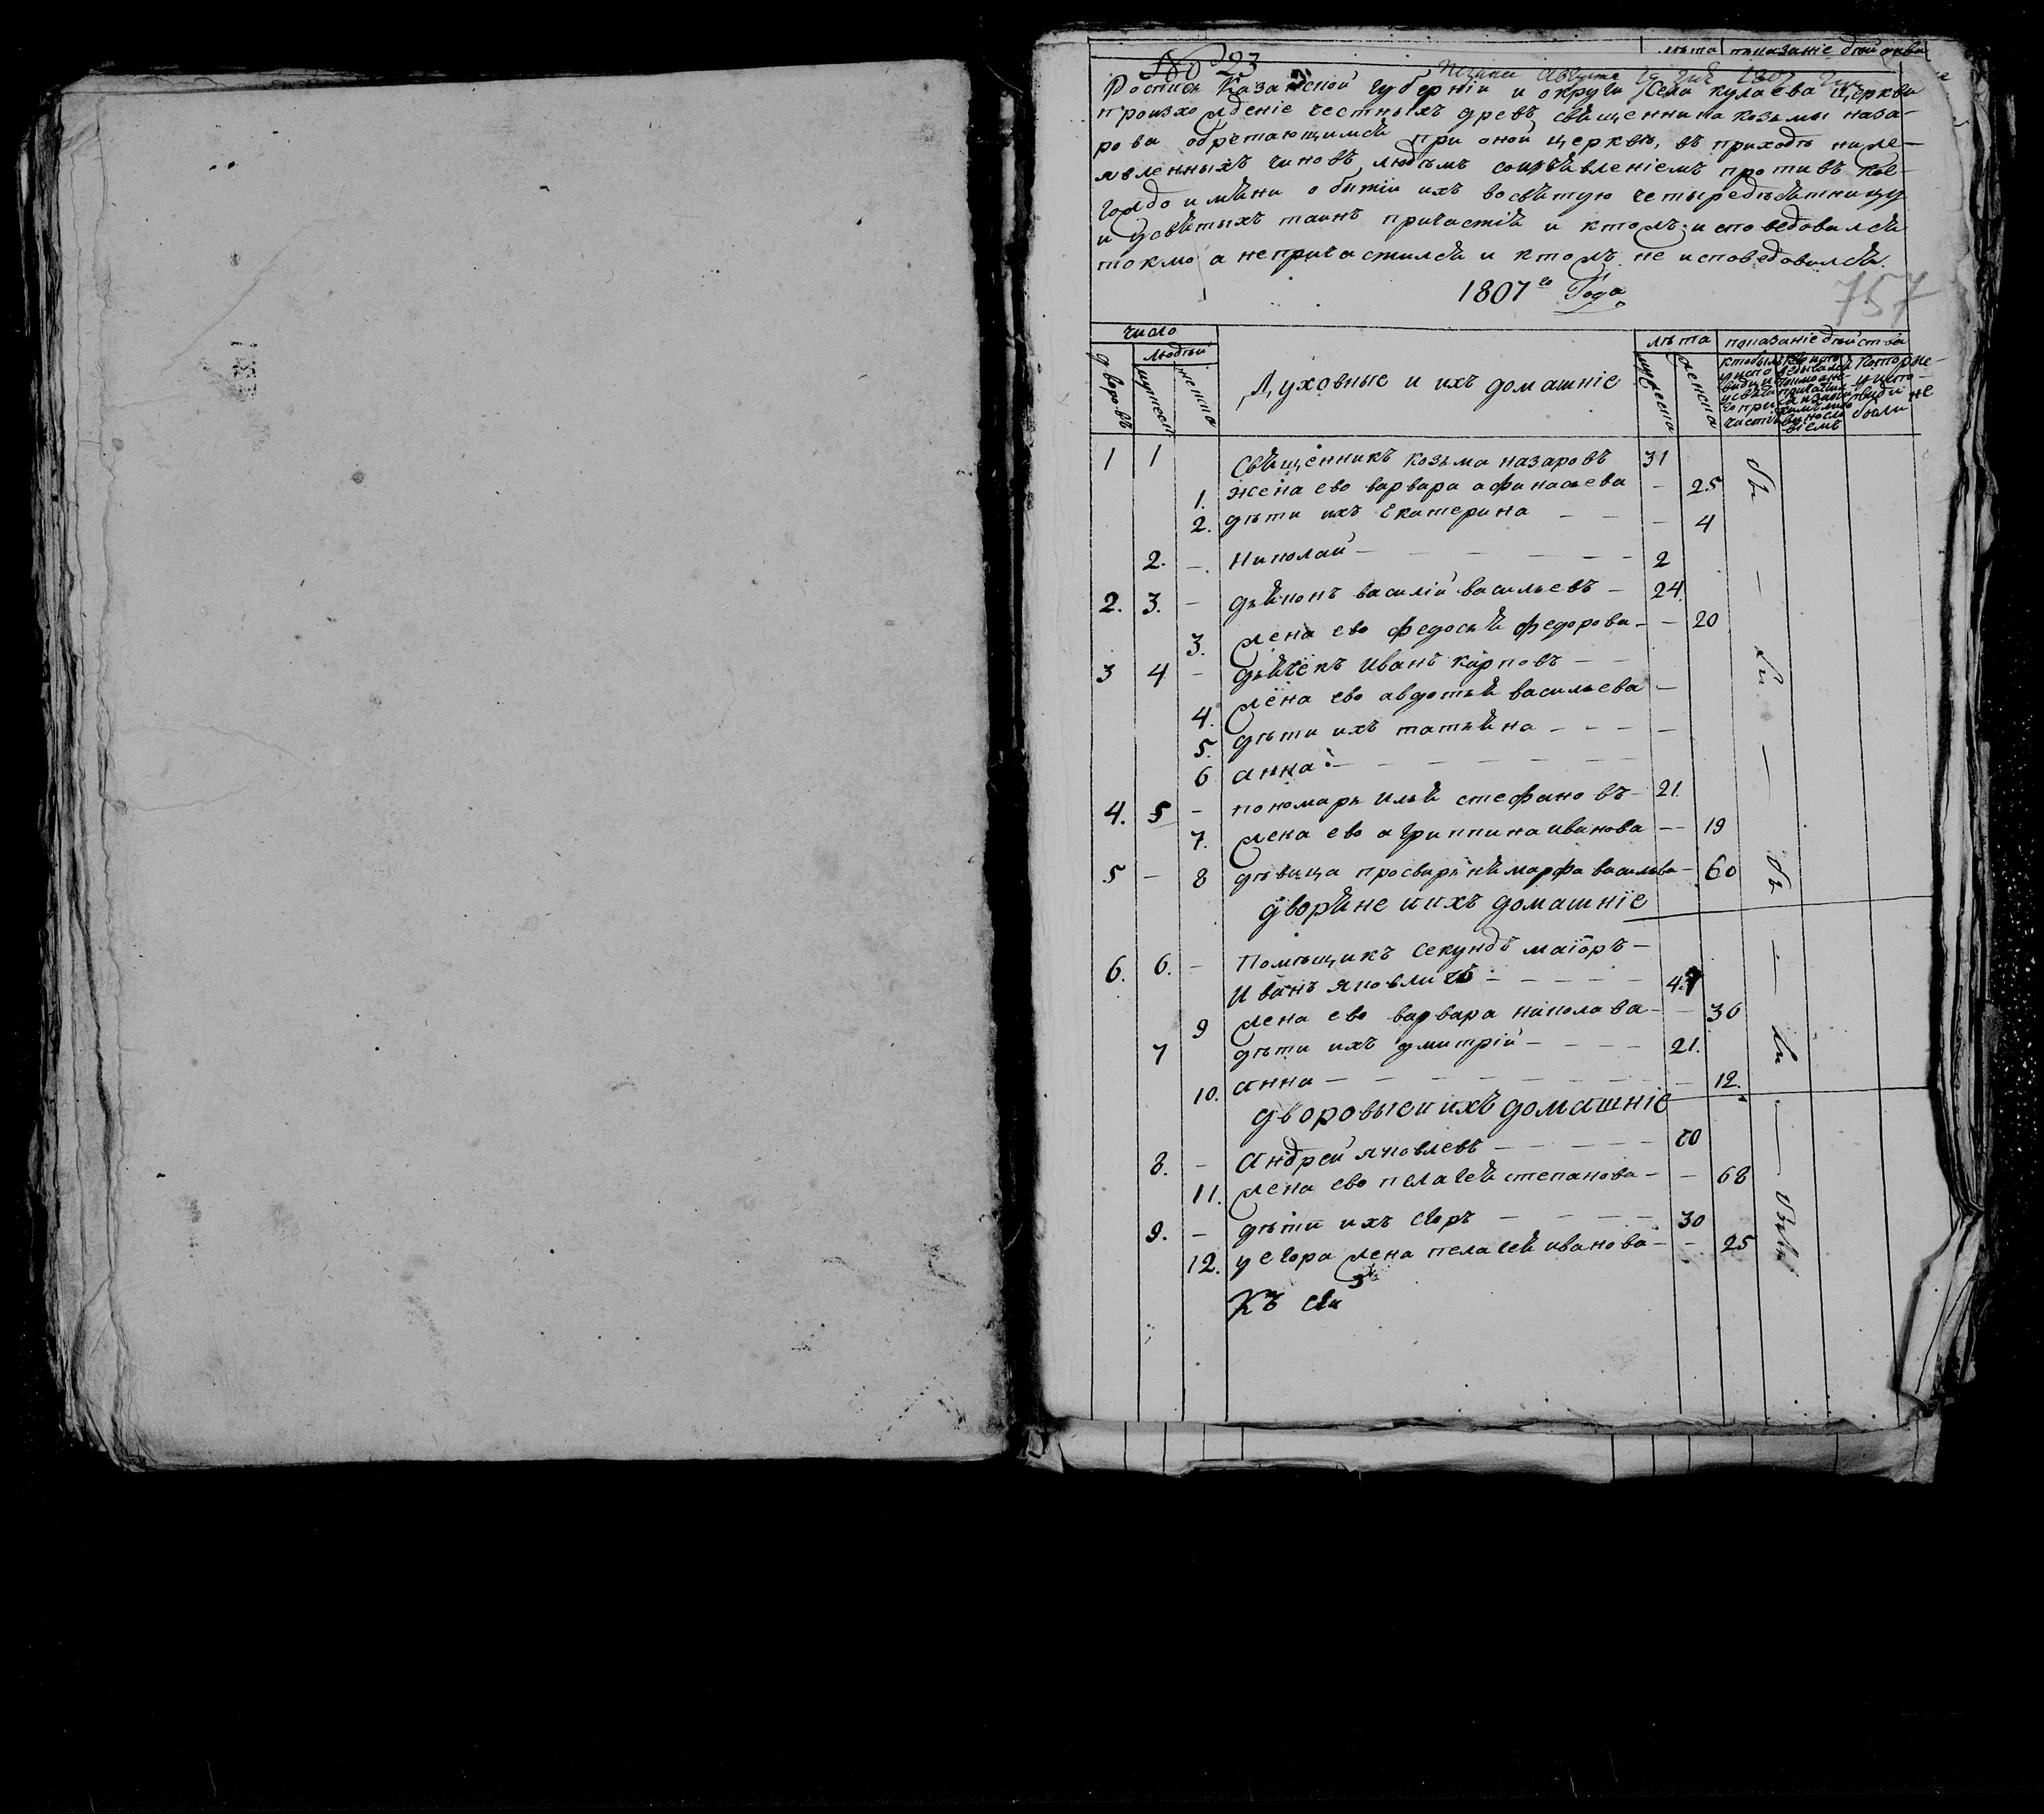 лѣта показаніе
No 23
августа 1807
Роспись Казанской губерніи и округи села кулаева церкви
произхожденіе честныхъ древъ священника козьмы наза-
рова обретающимся при оной церквѣ, въ приходѣ ниже-
явленныхъ чиновъ людемъ соизъявленіемъ противъ кое-
гождо имяни о бытіи ихъ восвятую четыредесятницу
и усвятыхъ таинъ причастія и ктомъ исповедовался
токмо а непричастился и ктомъ не исповедовался.
1807го Года
757
число лѣта показаніе дѣйства
людей
дворовъ мужеск женска Духовные и ихъ домашніе мужеска женска
1 1 Священникъ козьма назаровъ 31
1. жена ево варвара афанасьева – 25
2. дѣти ихъ Екатерина – – – 4
2. – Николай – – – – – 2
2. 3. – дьяконъ василій васильевъ – 24.
3. жена ево федосья федорова – – 20
3 4 – дьячекъ Иванъ карповъ – –
4. жена ево авдотья васильева –
5. дѣти ихъ татьяна – – – –
6 анна – – – – – –
4. 5 – пономарь илья стефановъ – 21.
7. жена ево агриппина иванова – 19
5 – 8 дѣвица просвирня марфа васильева – 60
дворяне и ихъ домашніе
6. 6. – Помѣщикъ секундъ маіоръ –
Иванъ яковличь – – – – – 47
9 жена ево варвара николава – – 36
7 дѣти ихъ дмитрій – – – – 21.
10. анна – – – – – – – 12.
дворовые и ихъ домашніе
8. – андрей яковлевъ – – – – – 70
11. жена ево пелагея степанова – – 68
9. – дѣти ихъ егоръ – – – – 30
12. у егора жена пелагея иванова – – 25
Къ сей